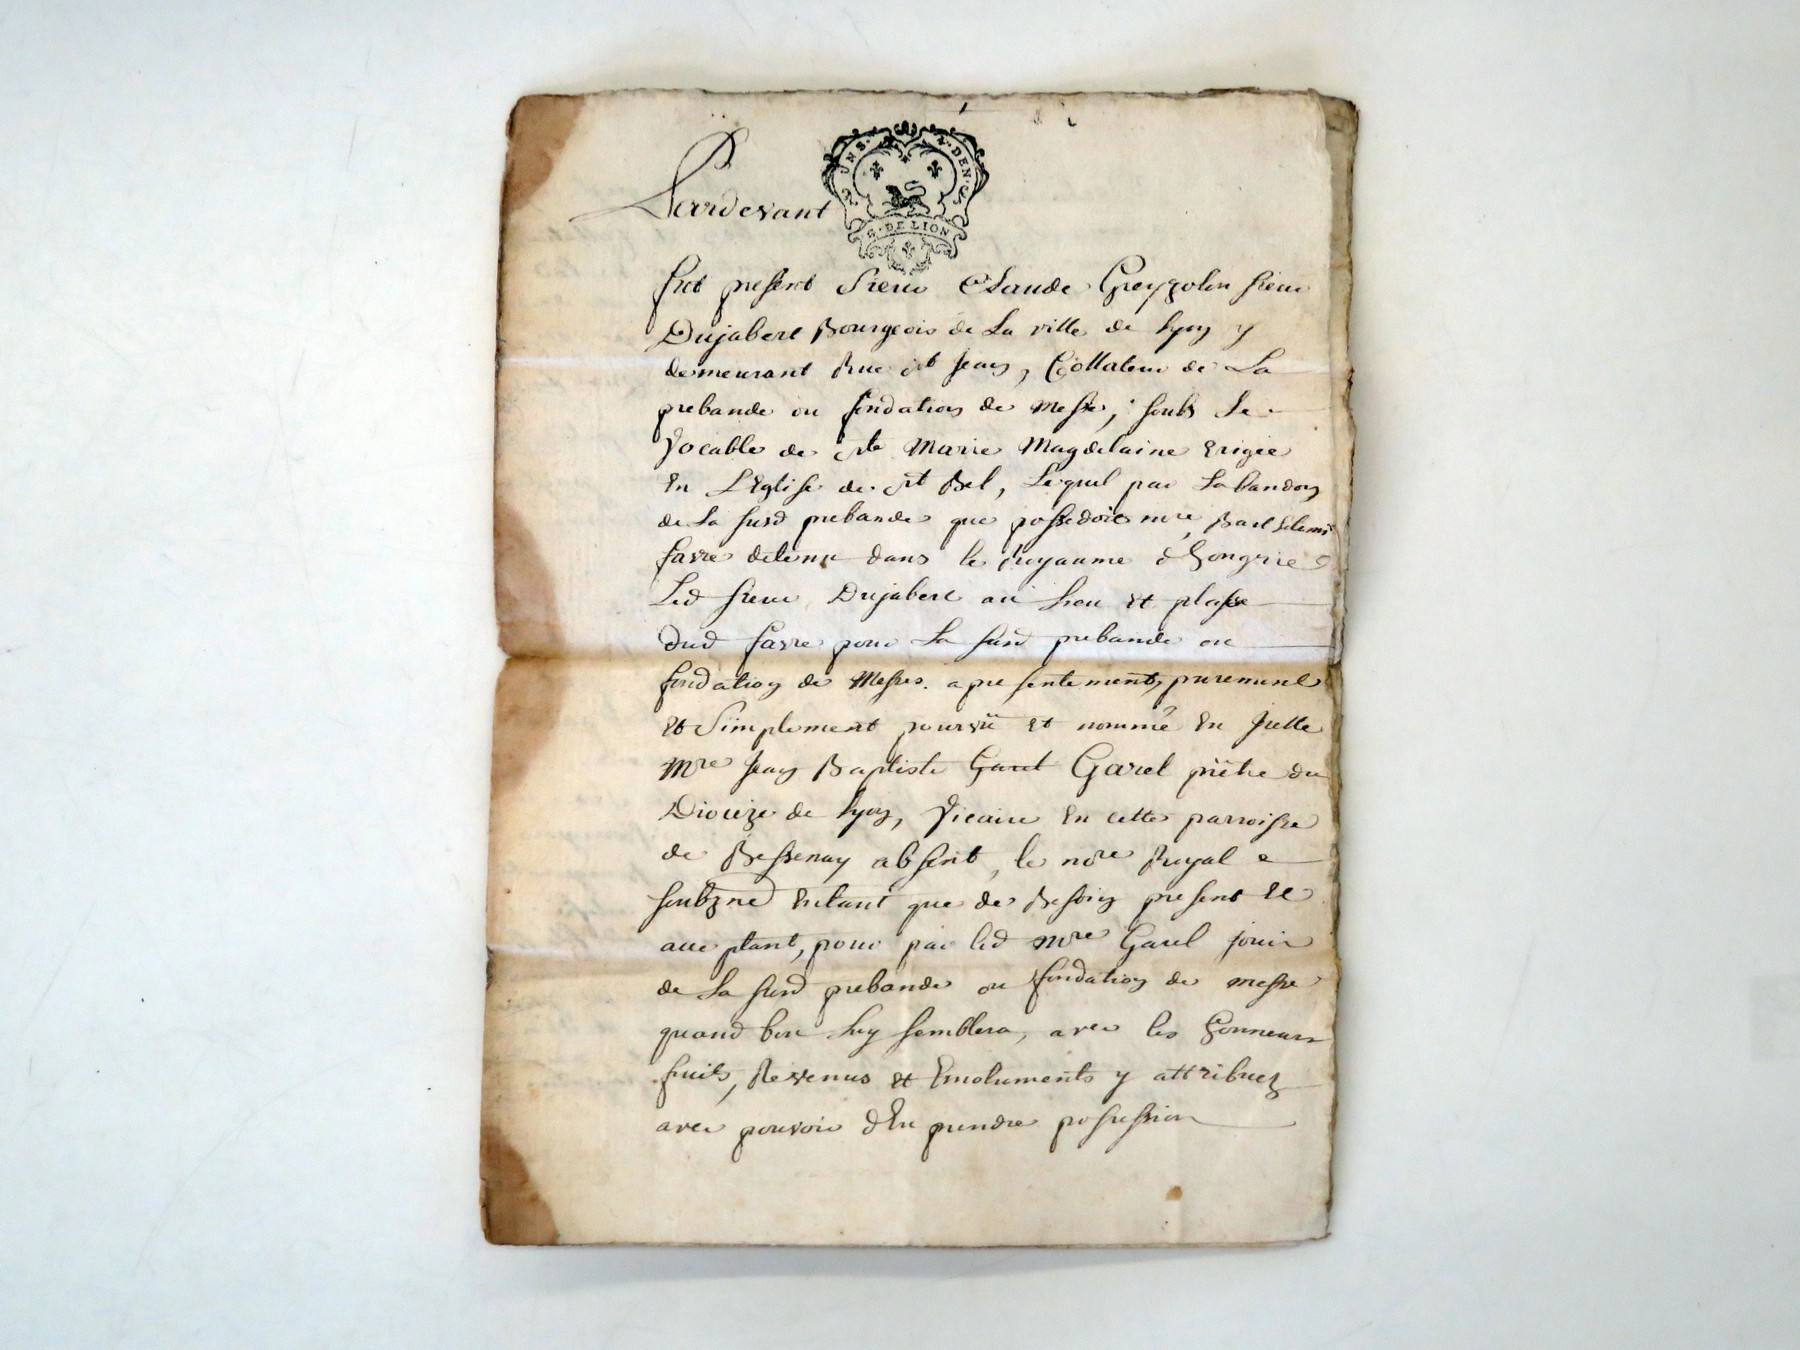 UN S. X. DEN.
G. DE LION
Pardevant
fut present Sieur Claude Greyzolon sieur
Dujabert Bourgeois de La ville de Lyon y
demeurant Rue st Jean, Collateur de La
prebande ou fondation de Messe, soubs Le
Vocable de ste Marie Magdelaine Erigée
En L'Eglise de st Bel, Lequel par Labandon
de La susd prebande que possedoit mre Barthelemi
favre detenu dans le Royaume d'hongrie
Led sieur Dujabert au lieu et plasse
dud favre pour La susd prebande ou
fondation de Messes. a presentement, purement
et Simplement pourvû et nommé En Jcelle
Mre Jean Baptiste Garel Garel prêtre du
Diocize de Lyon, Vicaire En cette parroisse
de Bessenay absent, le nore Royal
soubzne Entant que de Besoin present Et
acceptant, pour par led Mre Garel jouir
de La susd prebande ou fondation de messe
quand bon luy semblera, avec les honneurs
fruits, Revenus et Emoluments y attribuez
avec pouvoir d'En prendre possession